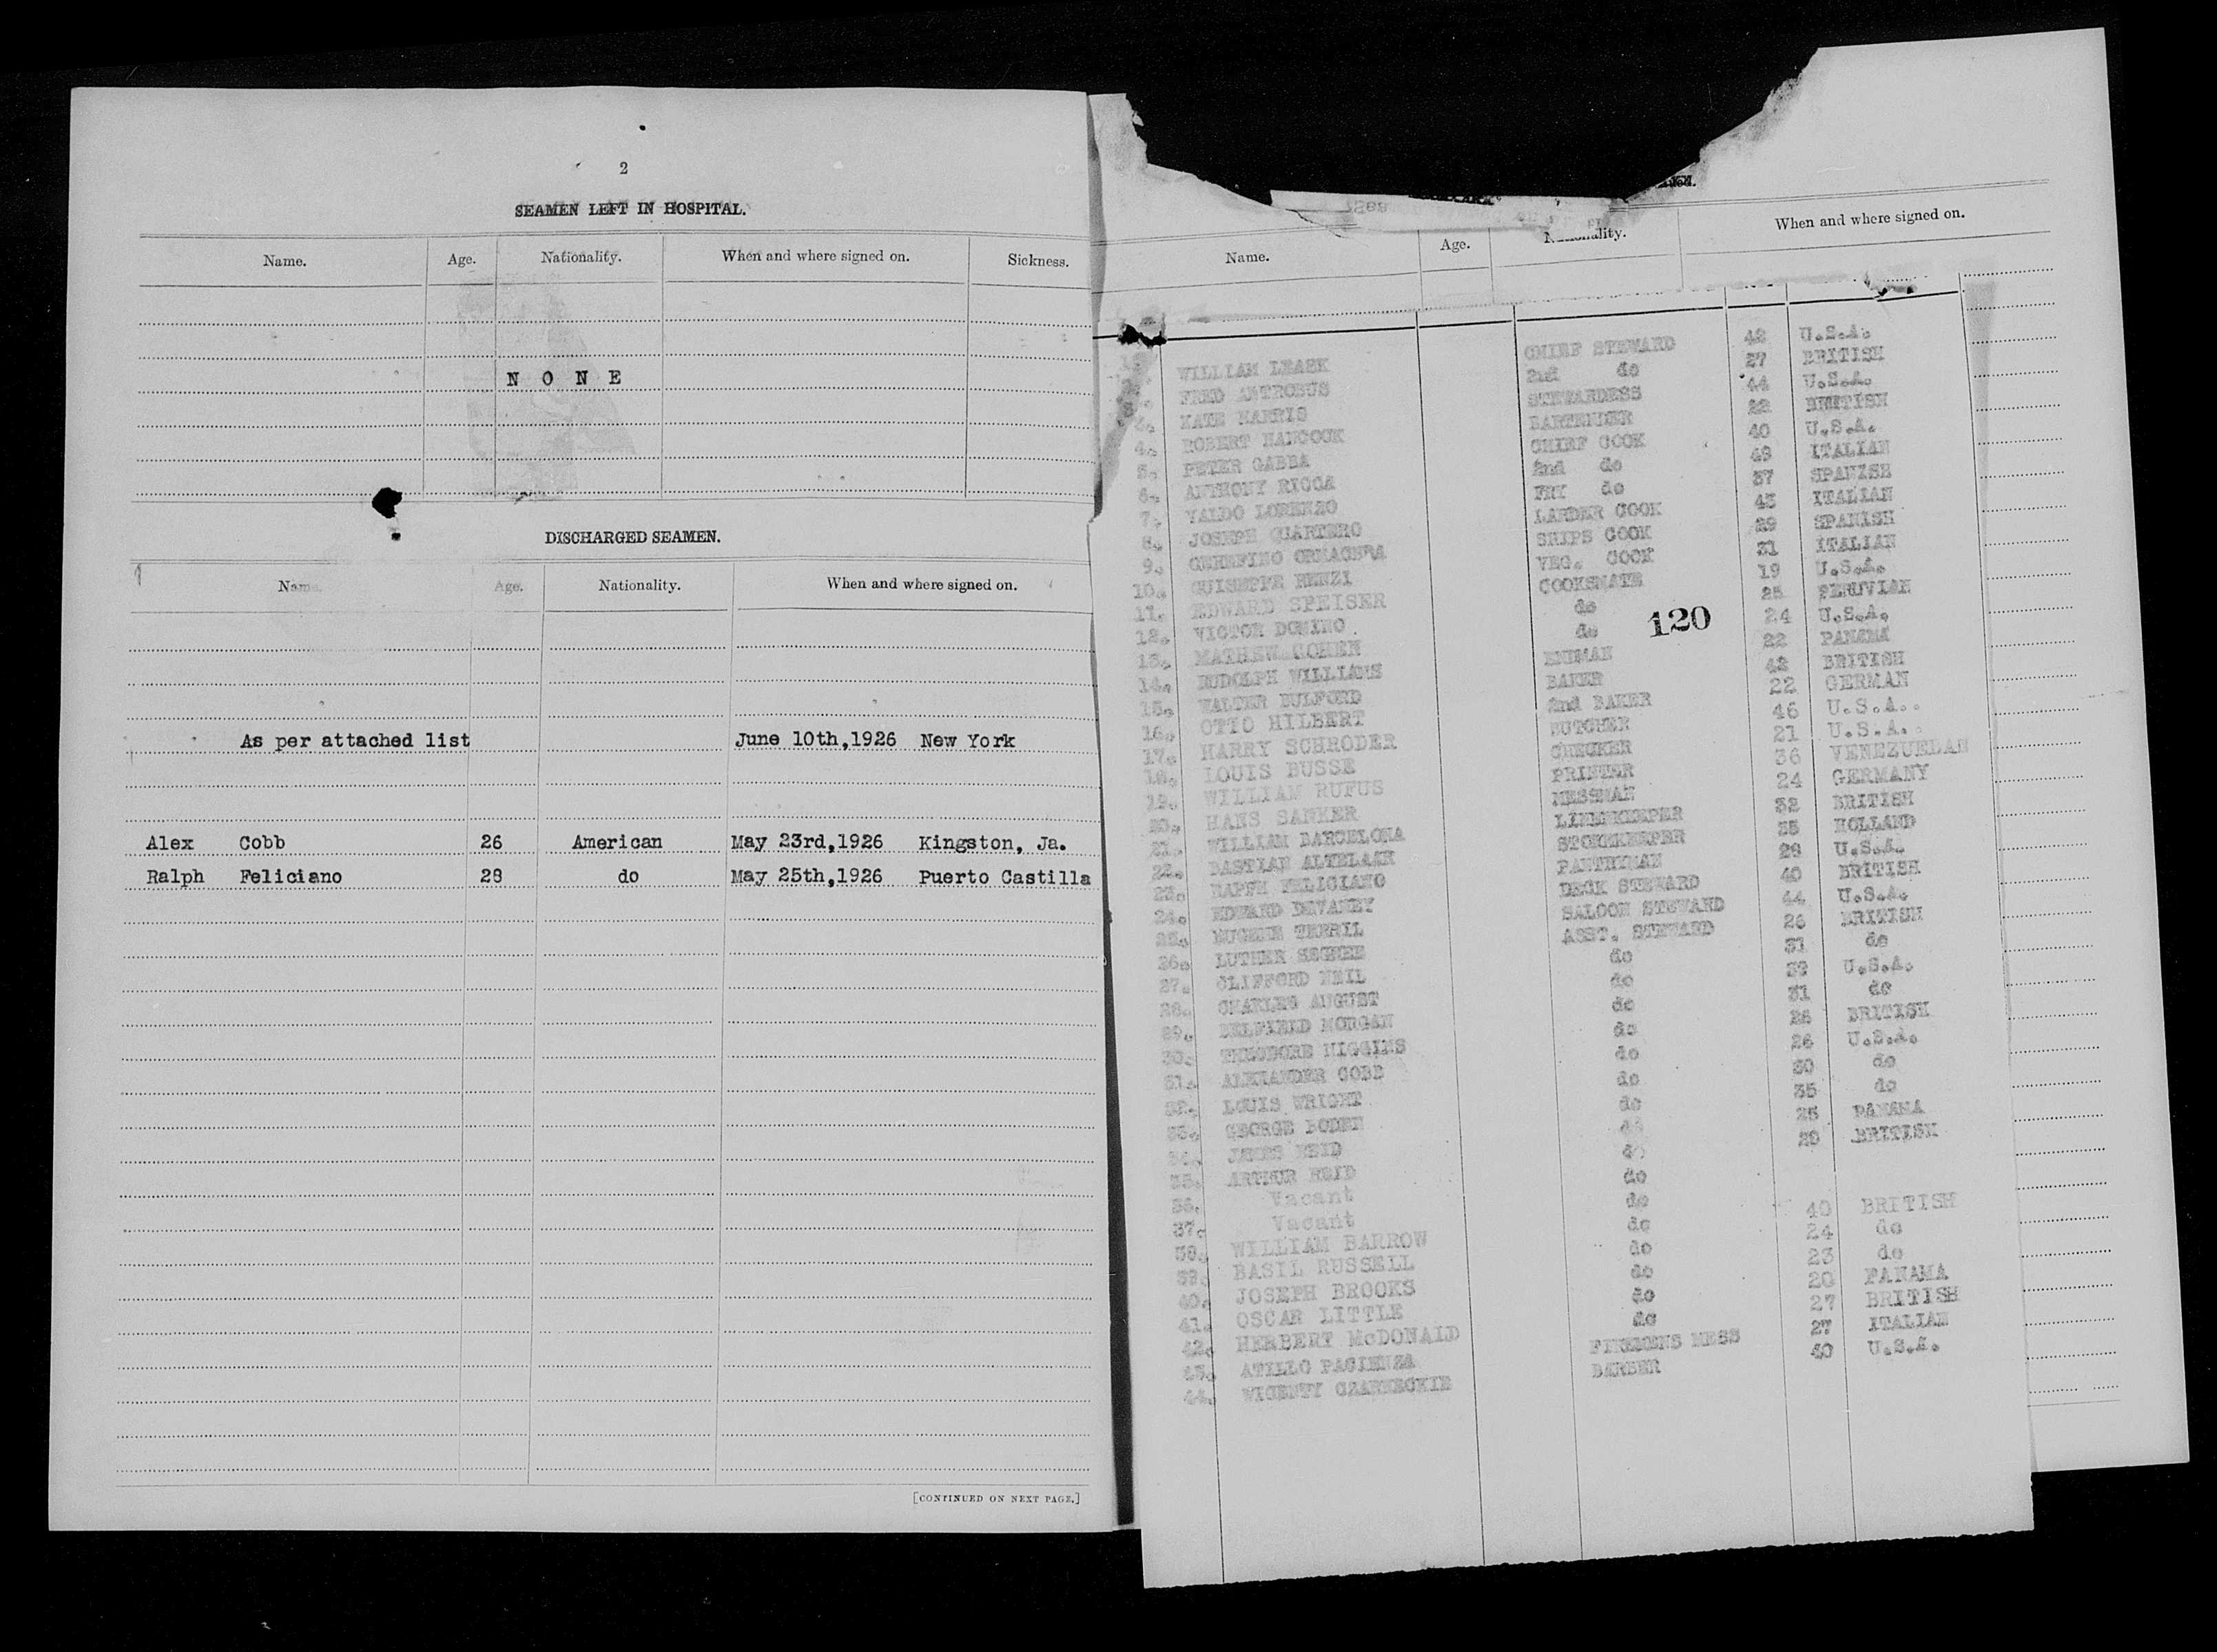 2
SEAMEN LEFT IN HOSPITAL.
Name. Age. Nationality. When and where signed on. Sickness.
N O N E
DISCHARGED SEAMEN.
Name. Age. Nationality. When and where signed on.
As per attached list June 10th,1926 New York
Alex Cobb 26 American May 23rd,1926 Kingston, Ja.
Ralph Feliciano 28 do May 25th,1926 Puerto Castilla
[CONTINUED ON NEXT PAGE.]
Name. Age. When and where signed on.
WILLIAM LEASK CHIEF STEWARD 42 U.S.A.
FRED ANTROBUS 2nd do 37 BRITISH
KATE HARRIS STEWARDESS 44 U.S.A.
4. ROBERT HANCOCK BARTENDER 22 BRITISH
5. PETER GABBA CHIEF COOK 40 U.S.A.
6. ANTHONY RICCA 2nd do 49 ITALIAN
7. VALDO LORENZO FRY do 37 SPANISH
8. JOSEPH QUARTERO LARDER COOK 43 ITALIAN
9. SHIPS COOK 29 SPANISH
10. GUISEPPE RENZI VEG. COOK 31 ITALIAN
11. EDWARD SPEISER COOKSMATE 19 U.S.A.
12. VICTOR DOMINO do 25 PERUVIAN
13. MATHEW COHEN do 24 U.S.A.
120
14. RUDOLPH WILLIAMS 22 PANAMA
15. WALTER BULFORD BAKER 42 BRITISH
16. OTTO HILBERT 2nd BAKER 22 GERMAN
17. HARRY SCHRODER BUTCHER 46 U.S.A.
18. LOUIS BUSSE CHECKER 21 U.S.A.
19. WILLIAM RUFUS PRINTER 36 VENEZUELAN
20. HANS SANKER MESSMAN 24 GERMANY
21. WILLIAM BARCELONA LINENKEEPER 32 BRITISH
22. BASTIAN STOREKEEPER 35 HOLLAND
23. RALPH FELICIANO PANTRYMAN 28 U.S.A.
24. EDWARD DEVANEY DECK STEWARD 40 BRITISH
25. EUGENE TERRIL SALOON STEWARD 44 U.S.A.
26. LUTHER SEGREE ASST. STEWARD 26 BRITISH
27. CLIFFORD NEIL do 31 do
28. CHARLES AUGUST do 39 U.S.A.
29. BELFIELD MORGAN do 31 do
30. THEODORE HIGGINS do 25 BRITISH
31. ALEXANDER COBB do 26 U.S.A.
32. LOUIS WRIGHT do 30 do
33. GEORGE BODEN do 35 do
34. JAMES REID do 25 PANAMA
35. ARTHUR REID do 28 BRITISH
36. Vacant do
37. Vacant do
38. WILLIAM BARROW do 40 BRITISH
39. BASIL RUSSELL do 24 do
40. JOSEPH BROOKS do 23 do
41. OSCAR LITTLE do 20 PANAMA
42. HERBERT McDONALD do 27 BRITISH
43. ATILLO PACIENZA FIREMENS MESS 27 ITALIAN
44. WICENTY CZARNECKIE BARBER 40 U.S.A.